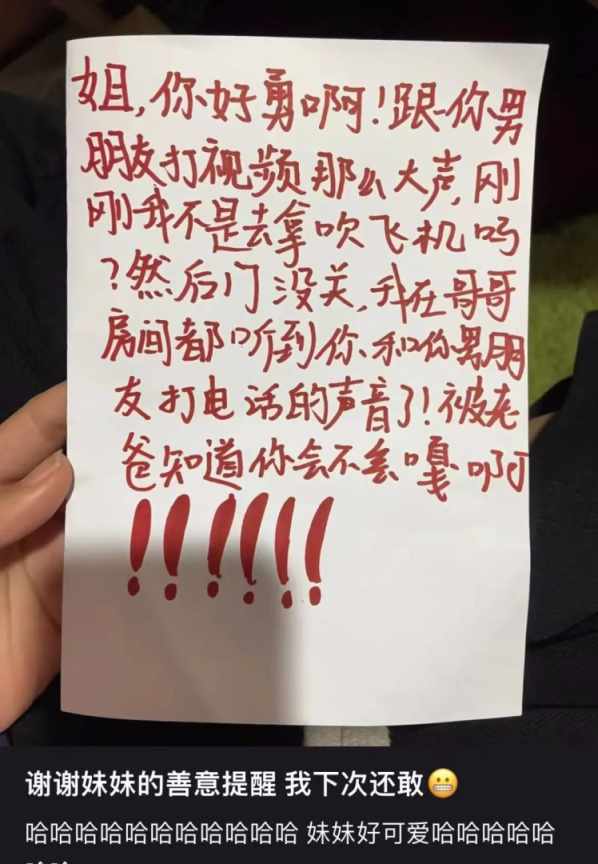 姐,你好勇啊!跟你男
朋友打视频那么大声,刚
刚我不是去拿吹飞机吗
?然后门没关,我在哥哥
房间都听到你和你男朋
友打电话的声音了!被老
爸知道你会不会嘎啊
!!!!!!
谢谢妹妹的善意提醒 我下次还敢😬
哈哈哈哈哈哈哈哈哈哈哈 妹妹好可爱哈哈哈哈哈